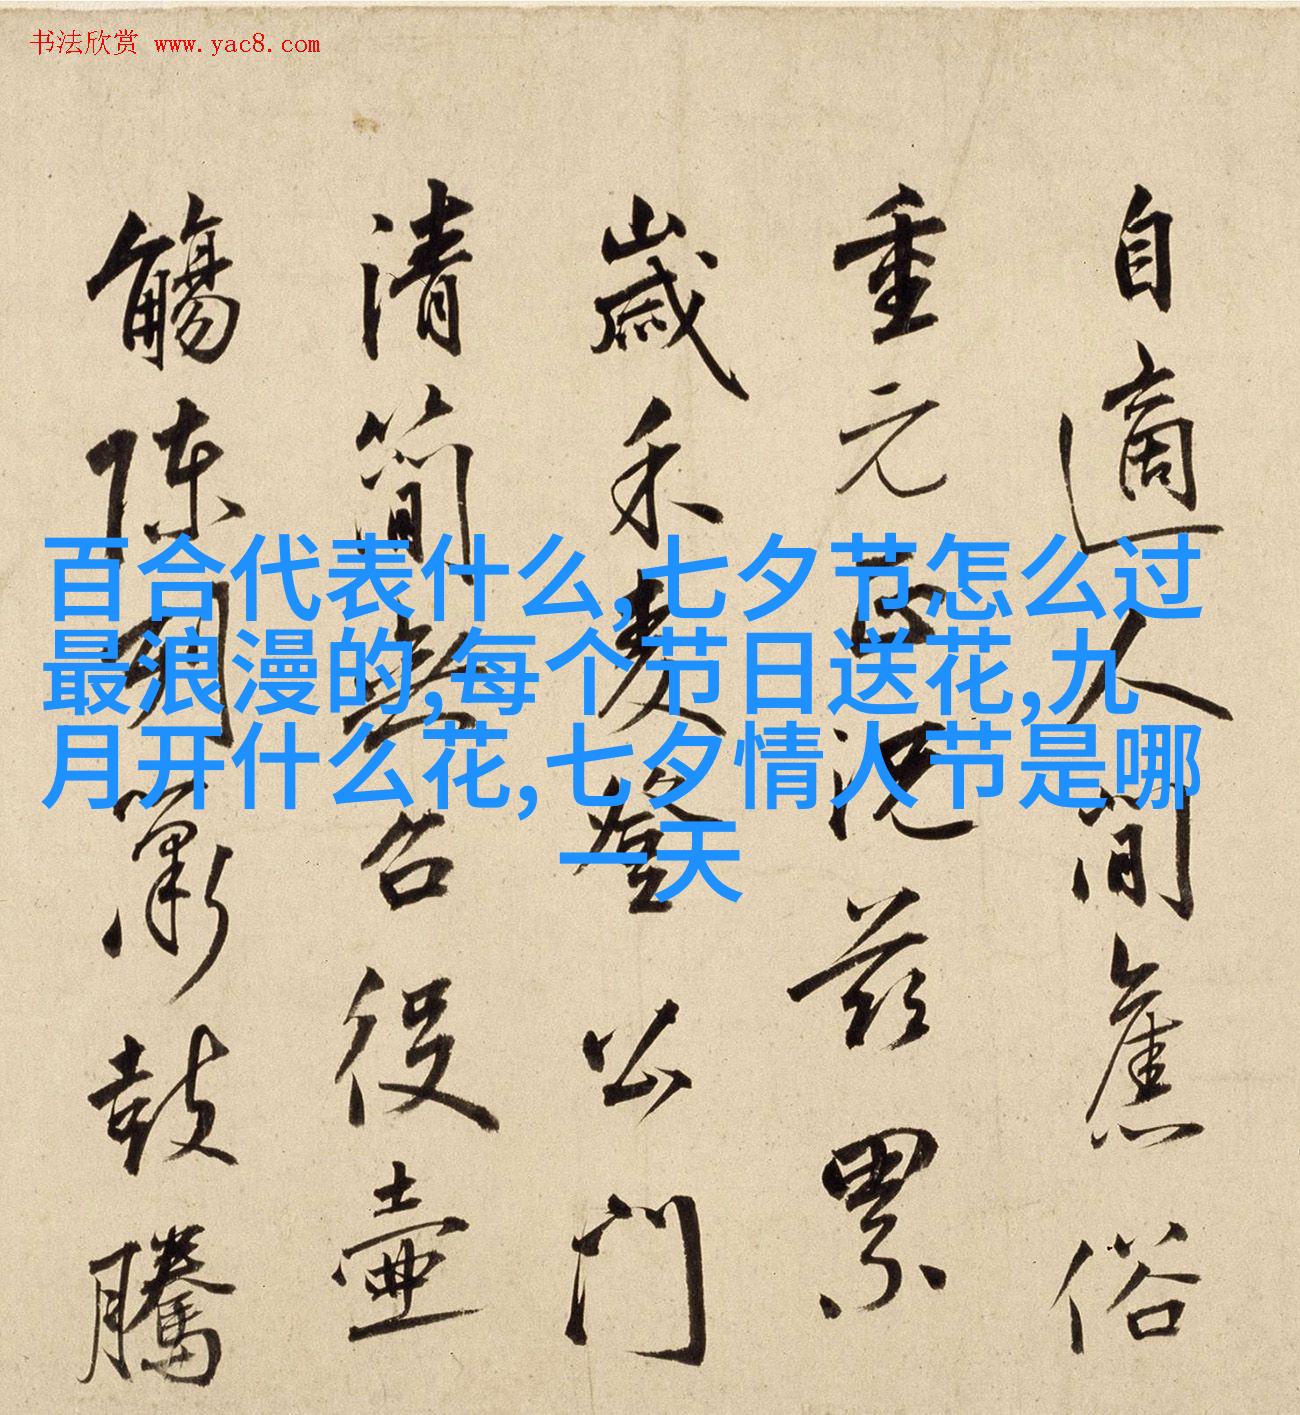 书法欣赏 www.yac8.com
百合代表什么,七夕节怎么过
最浪漫的,每个节日送花,九
月开什么花,七夕情人节是哪
一天
自適人間舊俗
重元正況茲累
歲禾麥登公門
清簡無召役壺
觴陳簫鼓騰